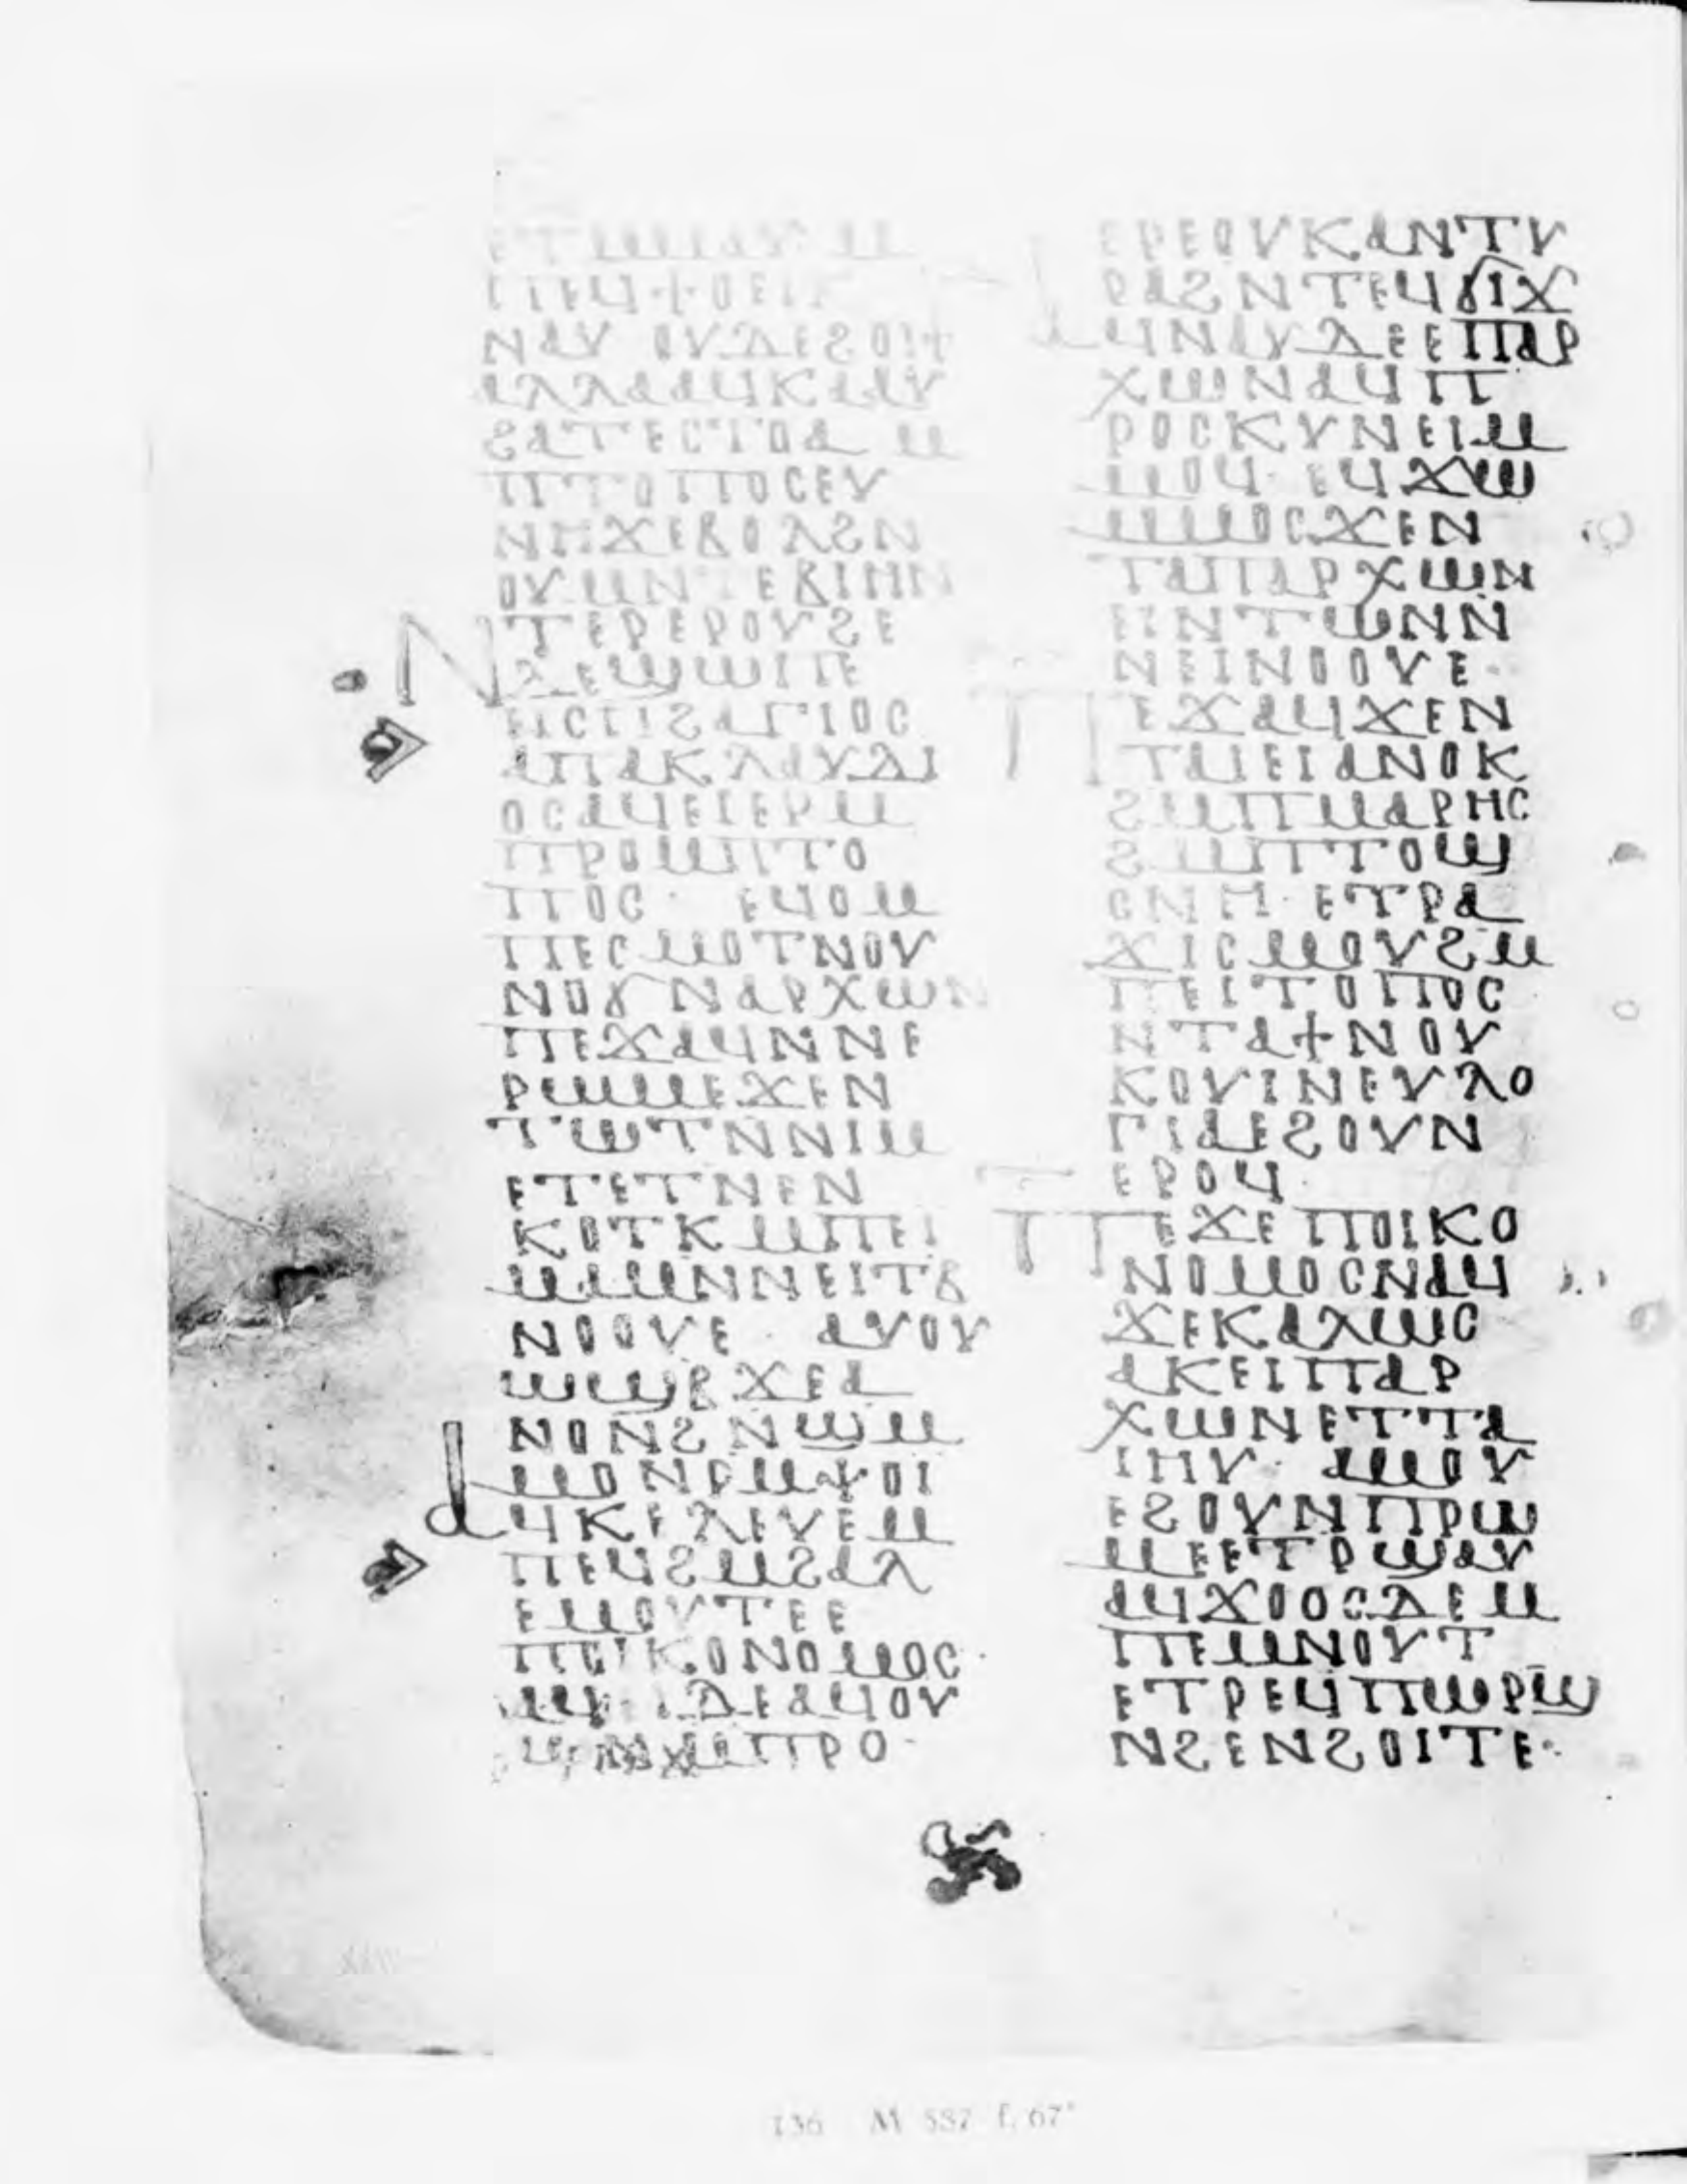 ⲉⲧⲙⲙⲁⲩ ⲙ
ⲡⲉϥϯⲟⲉⲓⲕ
ⲛⲁⲩ ⲟⲩⲇⲉϩⲟⲓϯ
ⲁⲗⲗⲁⲁϥⲕⲁⲁⲩ
ϩⲁⲧⲉⲥⲧⲟⲁ ⲙ
ⲡⲧⲟⲡⲟⲥⲉⲩ
ⲛⲏϫⲉⲃⲟⲗϩⲛ
ⲟⲩⲙⲛⲧⲉⲃⲓⲏⲛ
ⲛⲧⲉⲣⲉⲣⲟⲩϩⲉ
ⲇⲉϣⲱⲡⲉ
ⲉⲓⲥⲡϩⲁⲅⲓⲟⲥ
ⲁⲡⲁⲕⲗⲁⲩⲇⲓ
ⲟⲥⲁϥⲉⲓⲉⲣⲙ
ⲡⲣⲟⲙⲡⲧⲟ
ⲡⲟⲥ· ⲉϥⲟⲙ
ⲡⲉⲥⲙⲟⲧⲛⲟⲩ
ⲛⲟϭⲛⲁⲣⲭⲱⲛ
ⲡⲉϫⲁϥⲛⲛⲉ
ⲣⲱⲙⲉϫⲉⲛ
ⲧⲱⲧⲛⲛⲓⲙ
ⲉⲧⲉⲧⲛⲉⲛ
ⲕⲟⲧⲕⲙⲡⲉⲓ
ⲙⲁⲙⲛⲛⲉⲓⲧⲃ
ⲛⲟⲟⲩⲉ· ⲁⲩⲟⲩ
ⲱϣⲃϫⲉⲁ
ⲛⲟⲛϩⲛϣⲙ
ⲙⲟⲛⲣⲙϯⲟⲓ
ⲁϥⲕⲉⲗⲉⲩⲉⲙ
ⲡⲉϥϩⲙϩⲁⲗ
ⲉⲙⲟⲩⲧⲉⲉ
ⲡⲟⲓⲕⲟⲛⲟⲙⲟⲥ·
ⲇⲉⲁϥⲟⲩ
ⲙⲡⲣⲟ·
ⲉⲣⲉⲟⲩⲕⲁⲛⲧⲩ
ⲣⲁϩⲛⲧⲉϥϭⲓϫ
ⲁϥⲛⲁⲩⲇⲉⲉⲡⲁⲣ
ⲭⲱⲛⲁϥⲡ
ⲣⲟⲥⲕⲩⲛⲉⲓⲙ
ⲙⲟϥ· ⲉϥϫⲱ
ⲙⲙⲟⲥϫⲉⲛ
ⲧⲁⲡⲁⲣⲭⲱⲛ
ⲉⲓⲛⲧⲱⲛⲛ
ⲛⲉⲓⲛⲟⲟⲩⲉ·
ⲡⲉϫⲁϥϫⲉⲛ
ⲧⲁⲓⲉⲓⲁⲛⲟⲕ
ϩⲙⲡⲙⲁⲣⲏⲥ
ϩⲙⲡⲧⲟϣ
ⲥⲛⲏ· ⲉⲧⲣⲁ
ϫⲓⲥⲙⲟⲩϩⲙ
ⲡⲉⲓⲧⲟⲡⲟⲥ
ⲛⲧⲁϯⲛⲟⲩ
ⲕⲟⲩⲓⲛⲉⲩⲗⲟ
ⲅⲓⲁⲉϩⲟⲩⲛ
ⲉⲣⲟϥ·
ⲡⲉϫⲉⲡⲟⲓⲕⲟ
ⲛⲟⲙⲟⲥⲛⲁϥ
ϫⲉⲕⲁⲗⲱⲥ
ⲁⲕⲉⲓⲡⲁⲣ
ⲭⲱⲛⲉⲧⲧⲁ
ⲓⲏⲩ· ⲁⲙⲟⲩ
ⲉϩⲟⲩⲛⲡⲣⲱ
ⲙⲉⲉⲧⲣϣⲁⲩ
ⲁϥϫⲟⲟⲥⲇⲉⲙ
ⲡⲉⲙⲛⲟⲩⲧ
ⲉⲧⲣⲉϥⲡⲱⲣϣ
ⲛϩⲉⲛϩⲟⲓⲧⲉ·
136 M 587 f. 67ᵛ